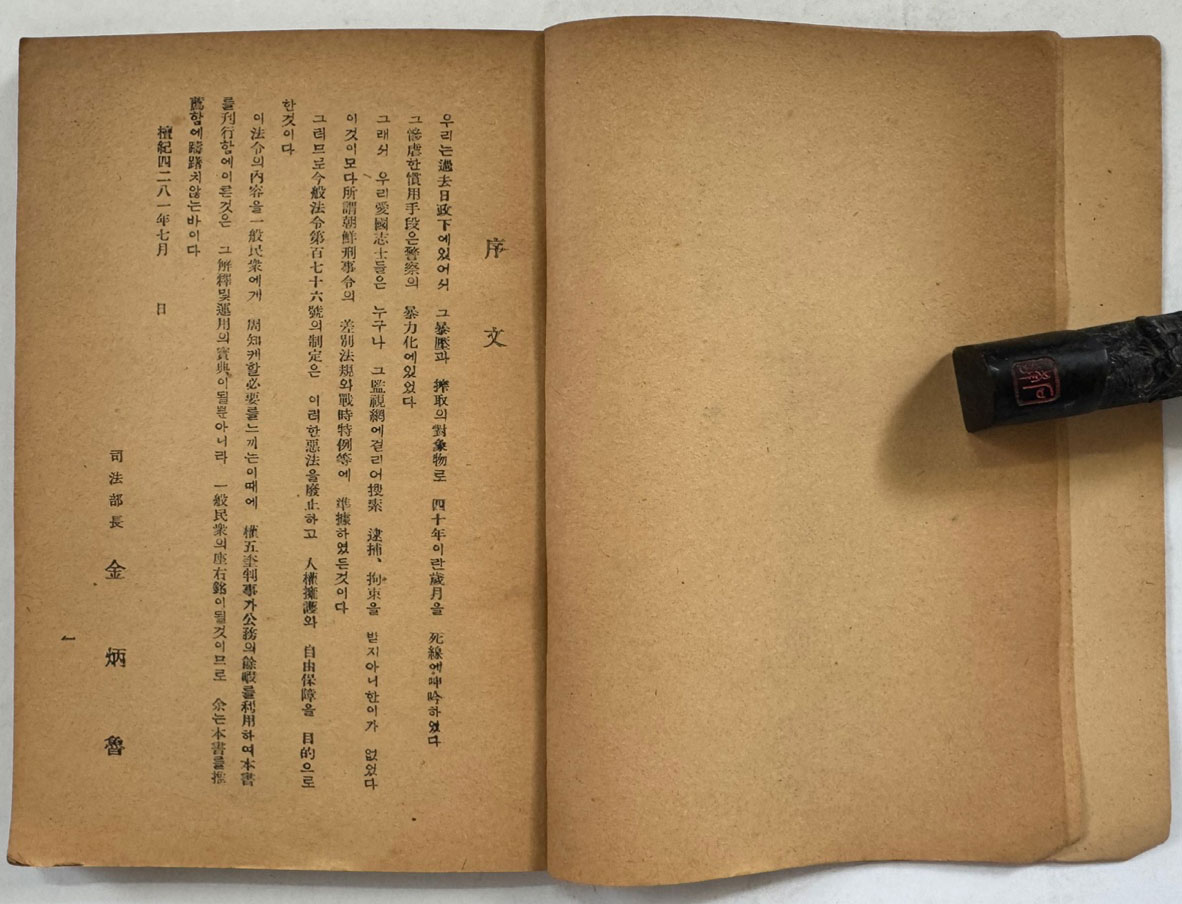 序 文
우리는過去日政下에있어서 그暴壓과 搾取의對象物로 四十年이란歲月을 死線에呻吟하였다
그慘虐한慣用手段은警察의 暴力化에있었다
그래서 우리愛國志士들은 누구나 그監視網에걸리어搜索 逮捕、拘束을 받지아니한이가 없었다
이것이모다所謂朝鮮刑事令의 差別法規와戰時特例等에 準據하였든것이다
그러므로今般法令第百七十六號의制定은 이러한惡法을廢止하고 人權擁護와 自由保障을 目的으로
한것이다
이法令의內容을一般民衆에게 周知케할必要를느끼는이때에 權五奎判事가公務의餘暇를利用하여本書
를刊行함에이른것은 그解釋및運用의寶典이될뿐아니라 一般民衆의座右銘이될것이므로 余는本書를推
薦함에躊躇치않는바이다
檀紀四二八一年七月 日
司法部長 金 炳 魯
一